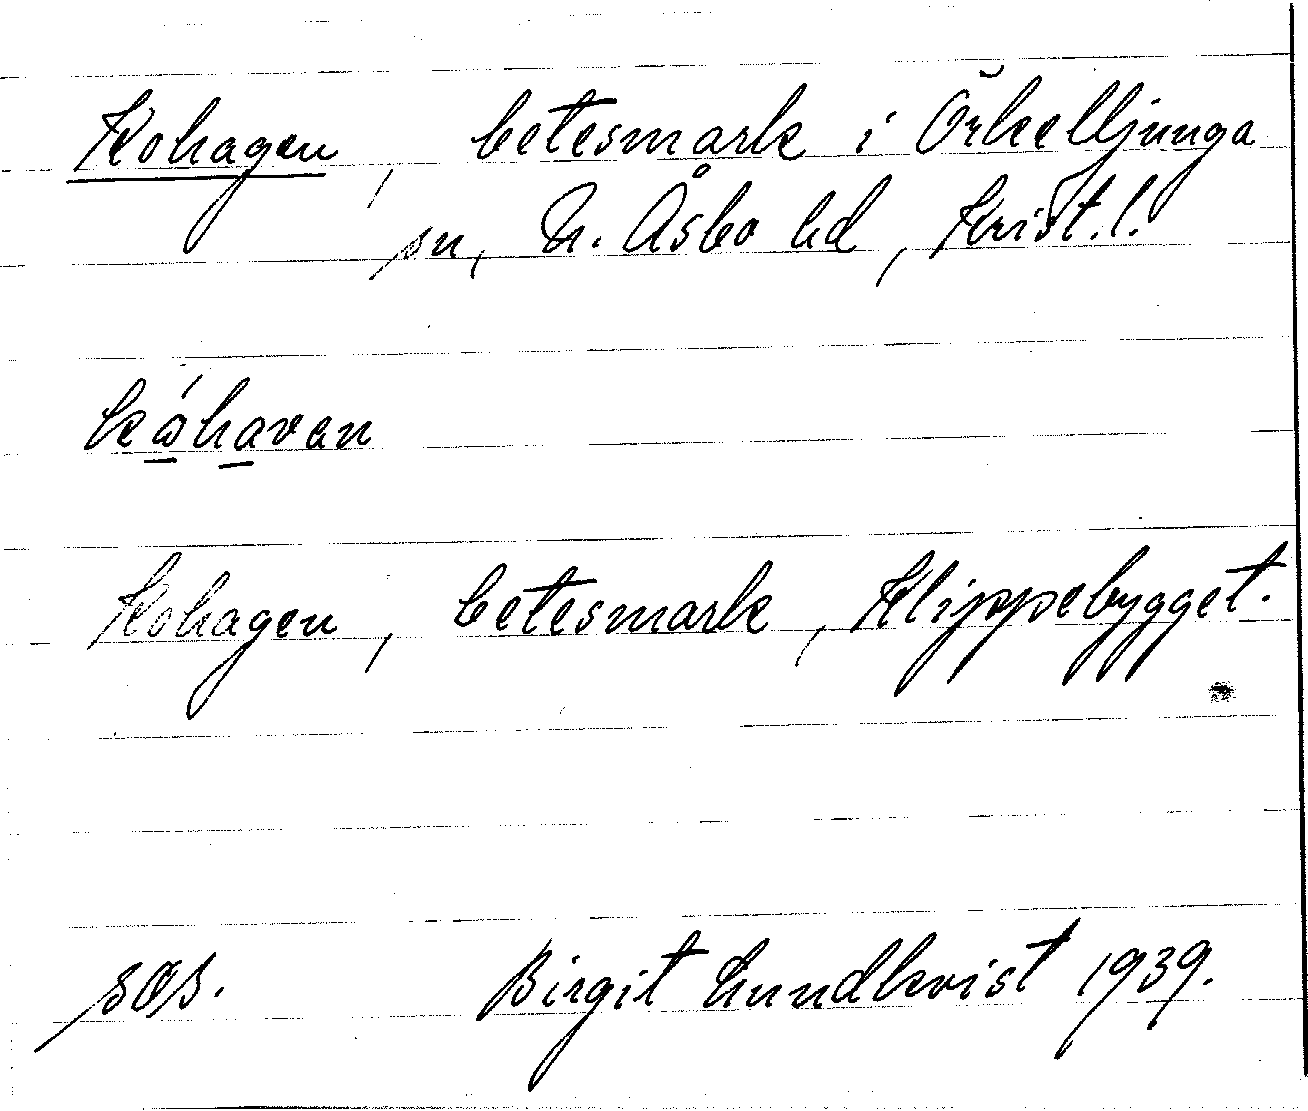 Kohagen, betesmark i Örkelljunga
sn, N. Åsbo hd, Krist. l.
kóhavan
Kohagen, betesmark, Klippebygget.
Birgit Lundkvist 1939.